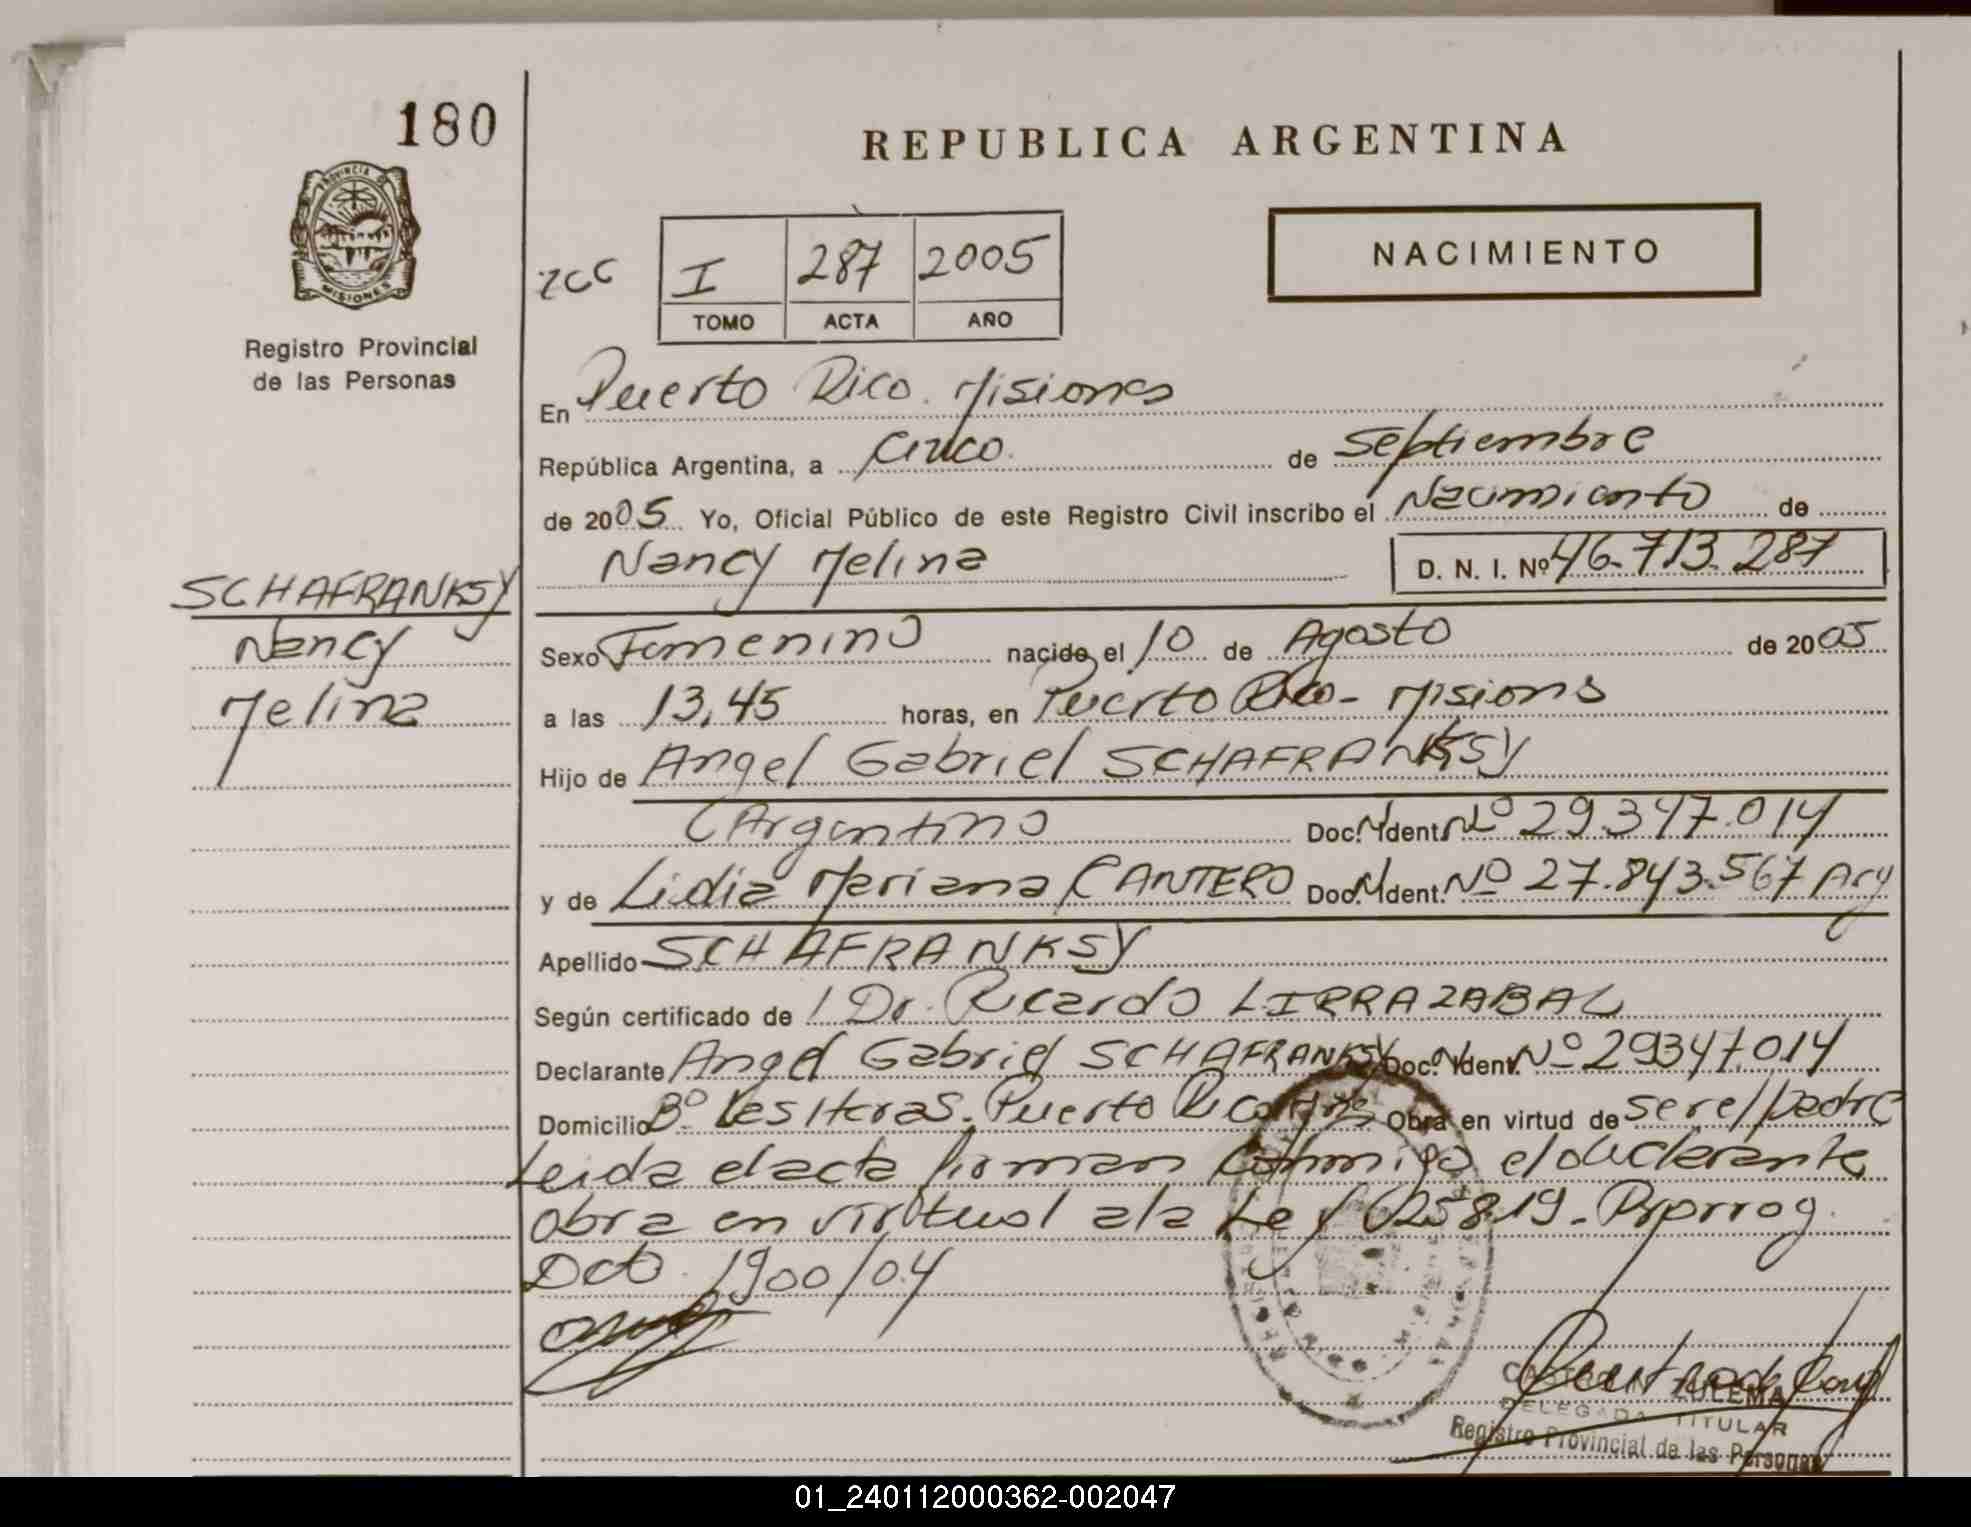 180
REPUBLICA ARGENTINA
PROVINCIA DE
MISIONES
Registro Provincial
de las Personas
I 287 2005
TOMO ACTA AÑO
NACIMIENTO
En Puerto Rico. Misiones
República Argentina, a Cinco. de Septiembre
de 2005 Yo, Oficial Público de este Registro Civil inscribo el Nacimiento de
Nancy Melina D. N. I. Nº 46.713.287
SCHAFRANKSY
Nancy
Melina
Sexo Femenino nacido el 10 de Agosto de 2005
a las 13,45 horas, en Puerto Rico - Misions
Hijo de Angel Gabriel SCHAFRANKSY
(Argentino Doc. N Ident. Nº 29.347.014
y de Lidia Mariana CANTERO Doc. N Ident. Nº 27.843.567 Arg
Apellido SCHAFRANKSY
Según certificado de Dr. Ricardo LIRRAZABAL
Declarante Angel Gabriel SCHAFRANKSY Doc. N Ident. Nº 29347.014
Domicilio Bº Puerto Rico Mnes Obra en virtud de ser el padre
Leida el acta firman conmigo el declarante
obra en virtud a la Ley 25819.
Dcto. 1900/04
ZULEMA
DELEGADA TITULAR
Registro Provincial de las Personas
01_240112000362-002047